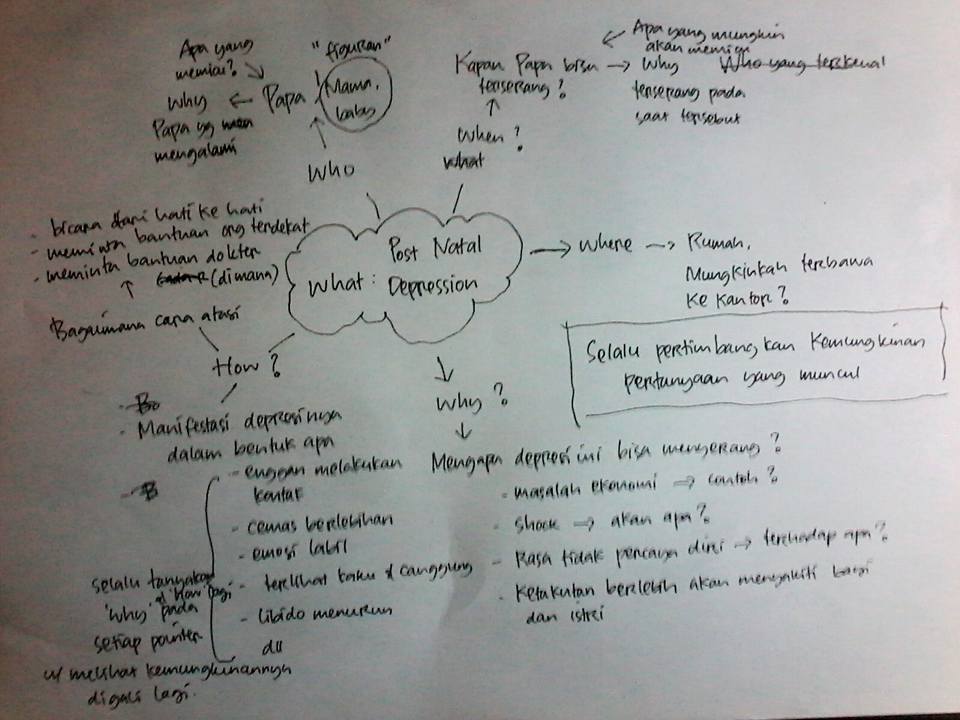 Apa yang
memicu?
Why
Papa yg
mengalami
Papa
"figuran"
Mama,
baby
Who
Kapan Papa bisa
terserang?
When?
What
Apa yang mungkin
akan memicu
Why
Who yang terkenal
terserang pada
saat tersebut
- bicara dari hati ke hati
- meminta bantuan org terdekat
- meminta bantuan dokter
(dimana)
Bagaimana cara atasi
How?
Post Natal
What: Depression
Where
Rumah,
Mungkinkah terbawa
ke kantor?
Selalu pertimbangkan kemungkinan
pertanyaan yang muncul
- Manifestasi depresinya
dalam bentuk apa
- enggan melakukan
kontak
- cemas berlebihan
- emosi labil
- terlihat kaku & canggung
- libido menurun
dll
selalu tanyakan
& 'How' lagi
'Why' pada
setiap pointer
u/ melihat kemungkinannya
digali lagi.
Why?
Mengapa depresi ini bisa menyerang?
- masalah ekonomi → contoh?
- Shock → akan apa?
- Rasa tidak percaya diri → terhadap apa?
- Ketakutan berlebih akan menyakiti bayi
dan istri